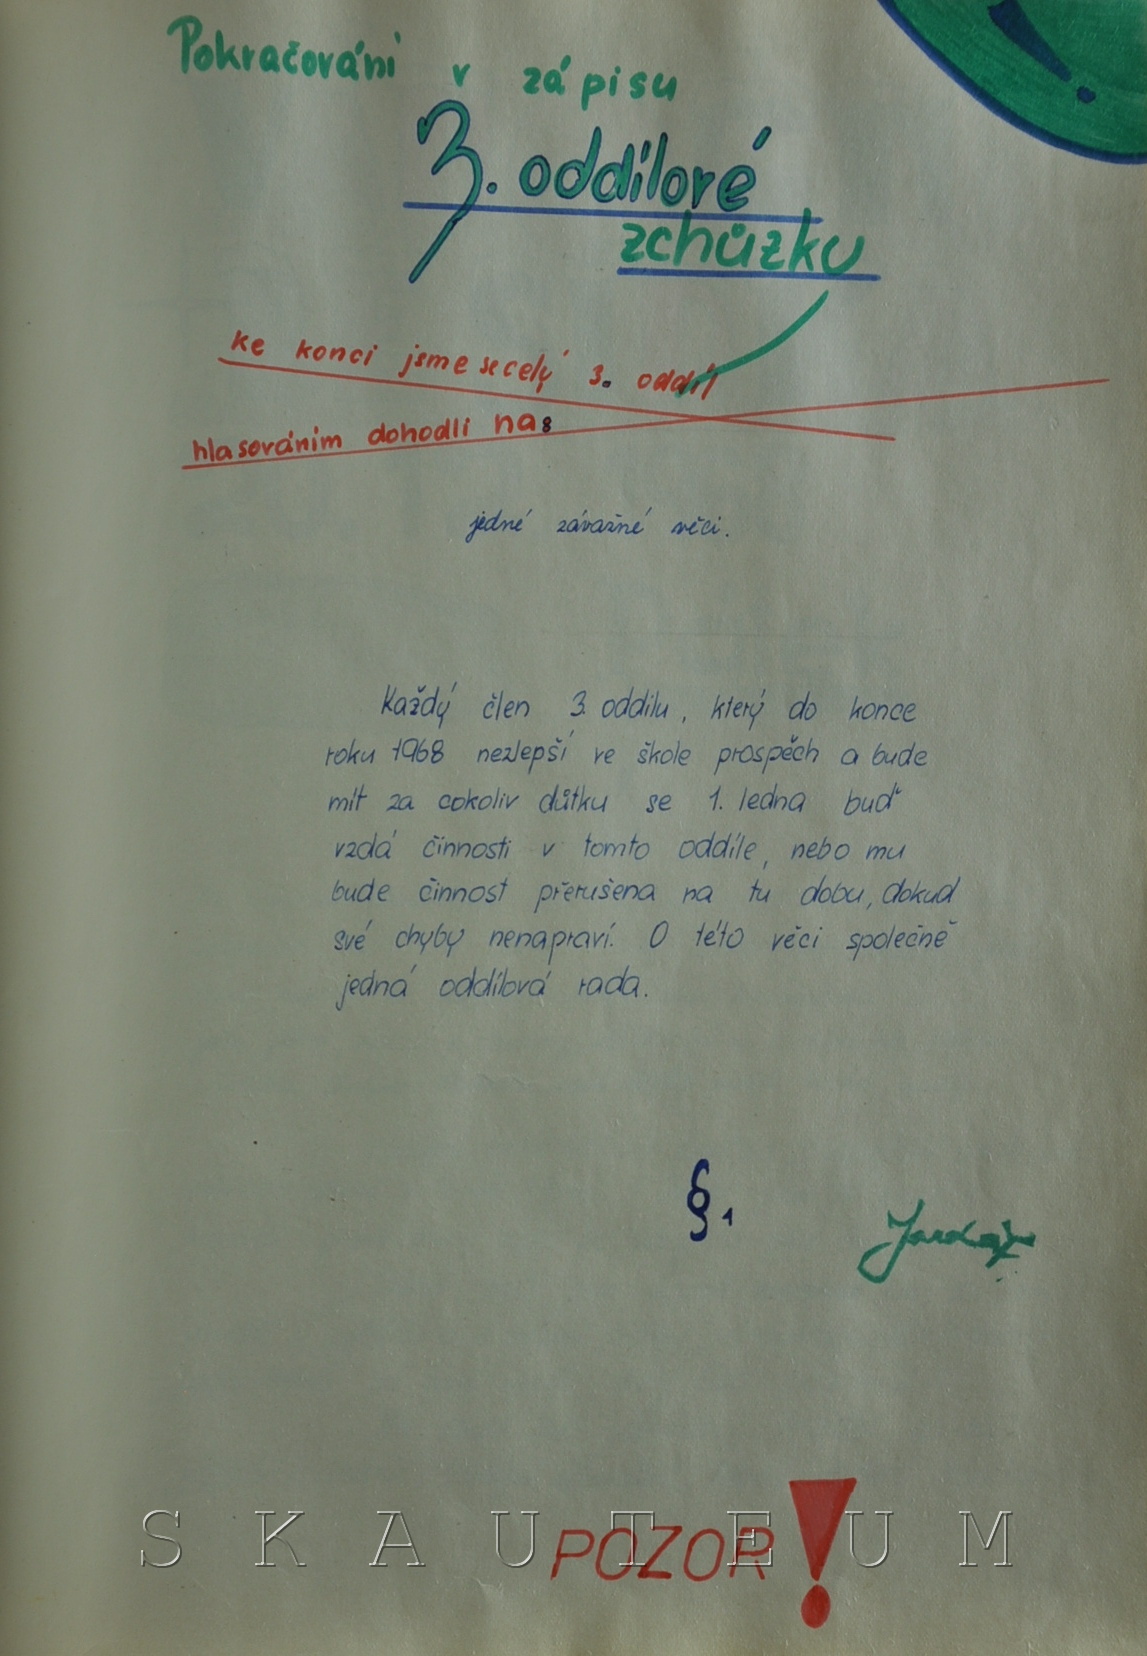 Pokračováni v zápisu
3. oddílové
zchůzku
ke konci jsme se celý 3. oddíl
hlasováním dohodli na:
jedné závažné věci.
Každý člen 3. oddilu, který do konce
roku 1968 nezlepší ve škole prospěch a bude
mít za cokoliv důtku se 1. ledna buď
vzdá činnosti v tomto oddíle, nebo mu
bude činnost přerušena na tu dobu, dokud
své chyby nenapraví. O této věci společně
jedná oddílová rada.
§ 1
POZOR!
SKAUTEUM